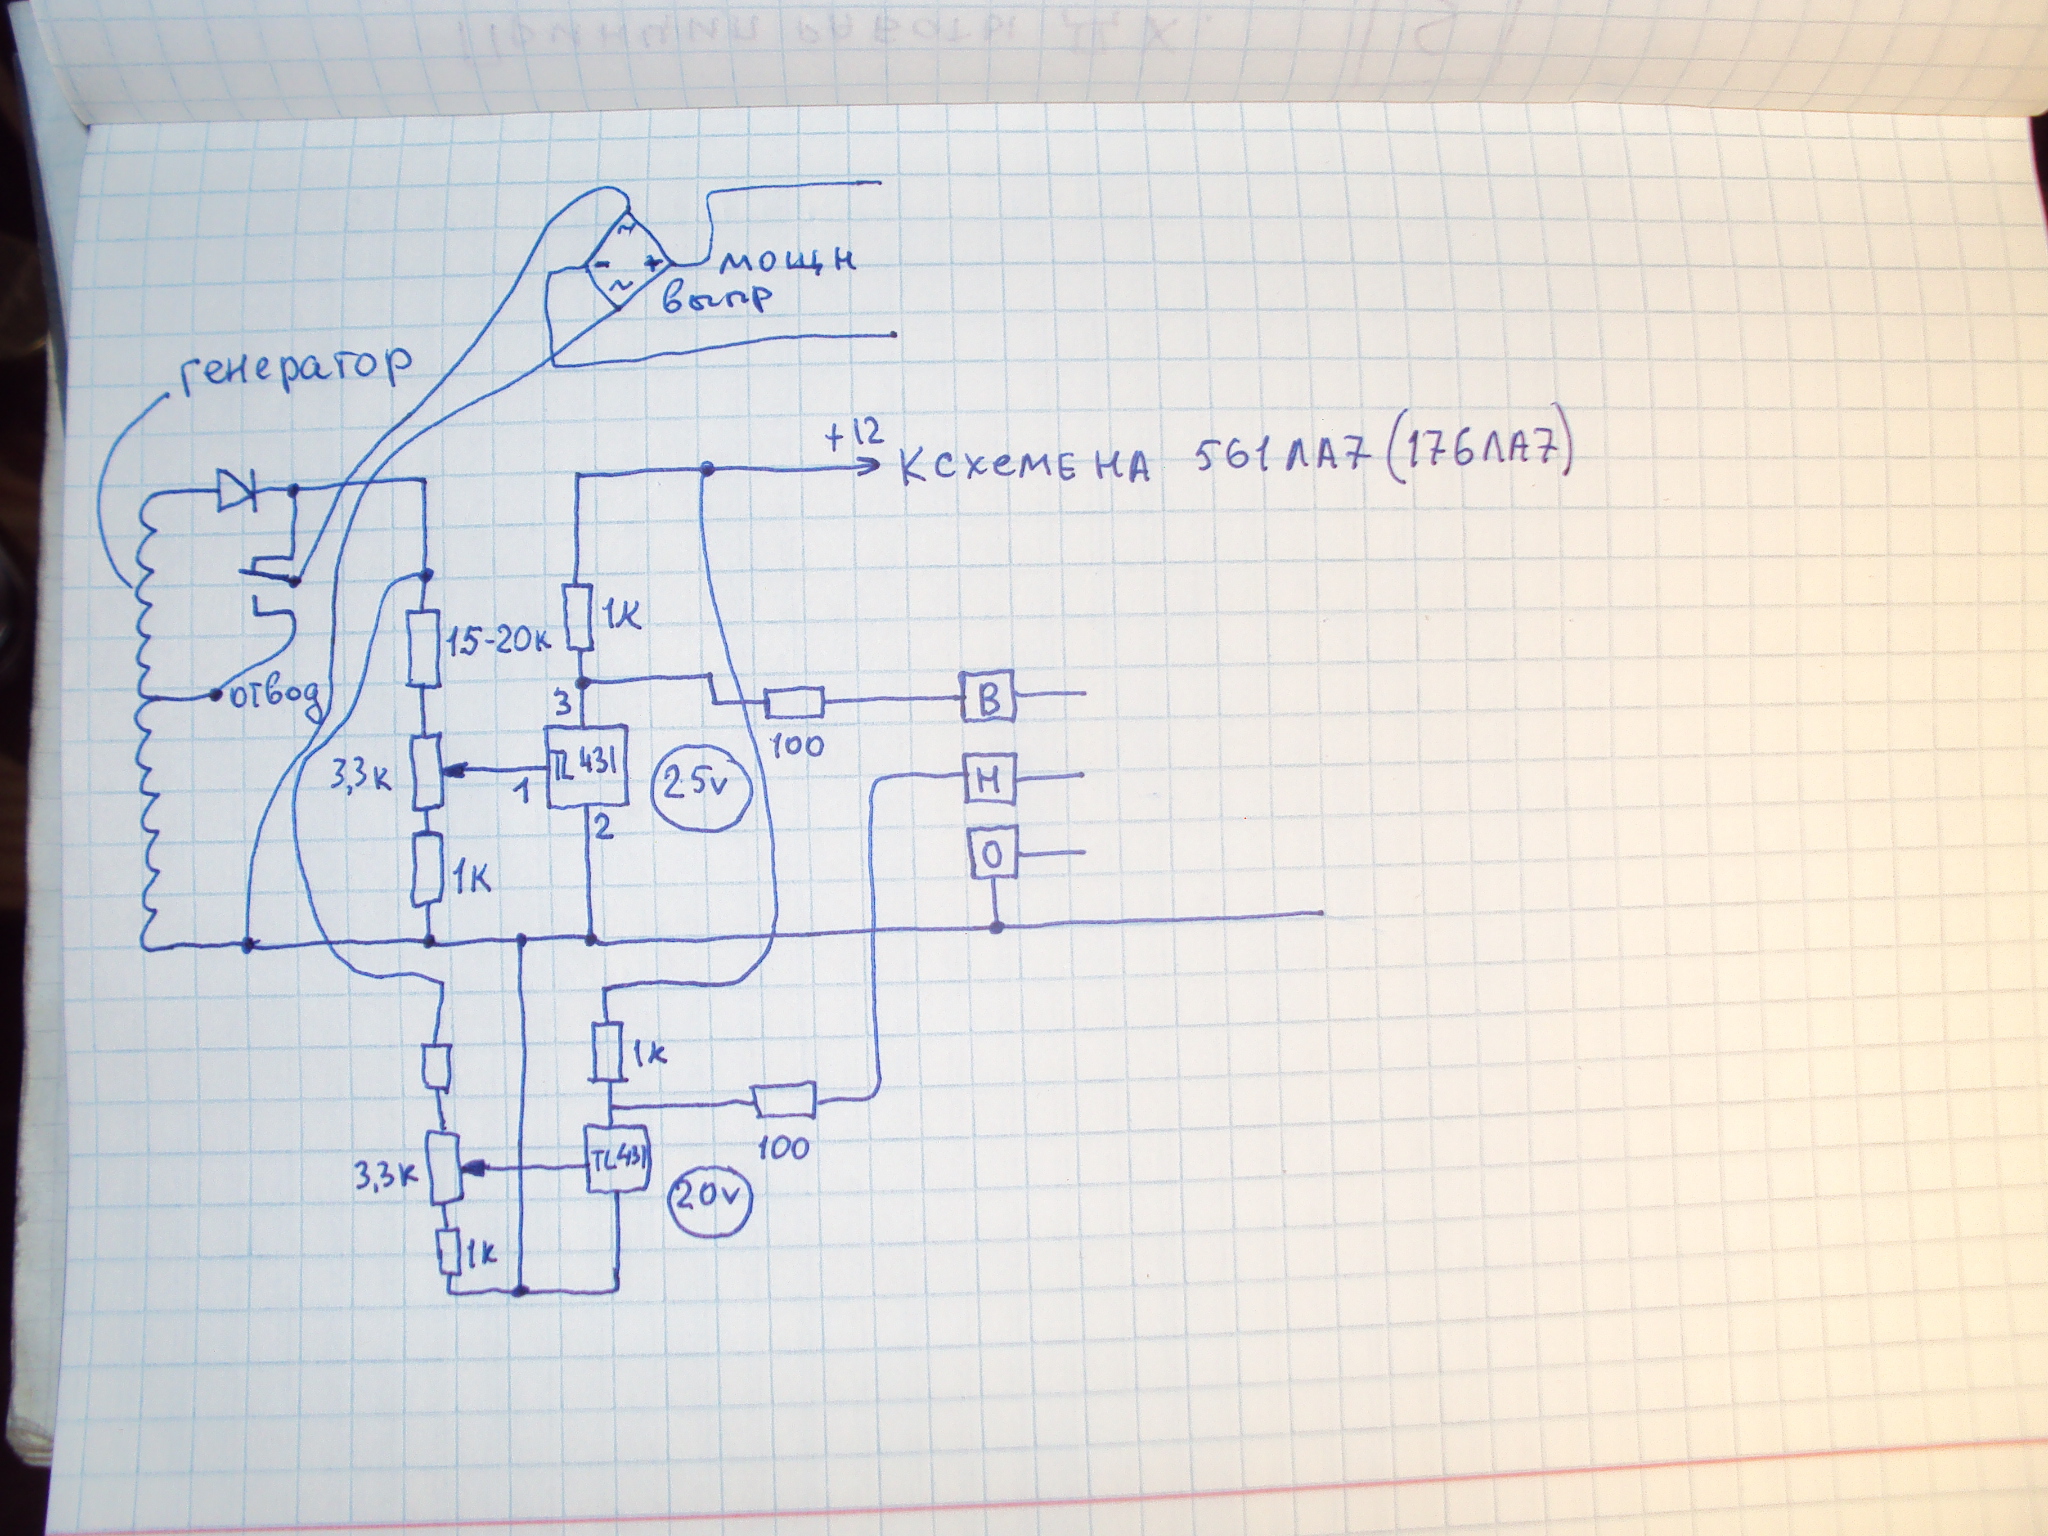 ~
- + мощн
~ выпр
генератор
+12
К СХЕМЕ НА 561ЛА7 (176ЛА7)
1К
15-20К
отвод
3
В
100
TL431
25v
3,3К
1
Н
2
О
1К
1К
100
TL431
3,3К
20v
1К